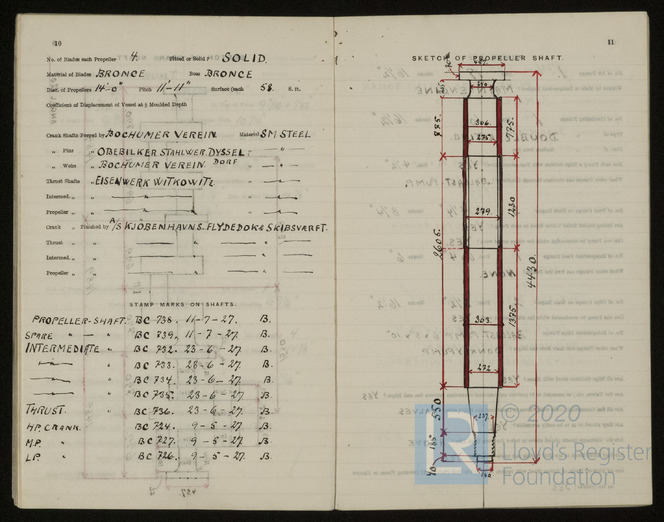 10
No. of Blades each Propeller 4. Fitted or Solid? SOLID.
Material of Blades BRONCE Boss BRONCE
Diam. of Propellers 14-0" Pitch 11'-11" Surface (each 58. S. ft.
Coefficient of Displacement of Vessel at ⅗ Moulded Depth
Crank Shafts Forged by BOCHUMER VEREIN. Material SM STEEL
„ Pins „ OBEBILKER STAHLWER. DYSSEL-
DORF
„ Webs „ BOCHUMER VEREIN.
Thrust Shafts „ EISENWERK WITKOWITZ
Intermed. „ „
Propeller „ „
Crank „ Finished by A/S KJOBENHAVNS. FLYDEDOK & SKIBSVÆRFT.
Thrust „ „
Intermed. „ „
Propeller „ „
STAMP MARKS ON SHAFTS.
PROPELLER-SHAFT. BC 738. 11-7-27. B.
SPARE — " BC 739, 11-7-27. B.
INTERMEDIATE - " BC 732. 23-6-27. B.
BC 733. 28-6-27 B.
BC 734. 23-6-27. B.
BC 735. 23-6-27 B.
THRUST. " BC 736. 23-6-27. B.
H.P. CRANK. BC 724. 9-5-27. B.
M.P. " BC 727. 9-5-27 B.
L.P. " BC 726. 9-5-27. B.
11
SKETCH OF PROPELLER SHAFT.
885.
306.
275.
775.
279.
1230
2605.
4430.
303.
1375.
272
550
237
165
40
© 2020
Lloyd's Register
Foundation